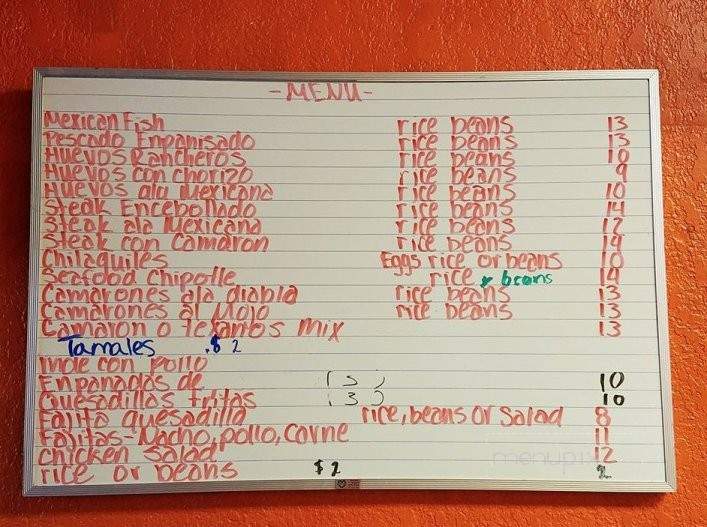 -MENU-
Mexican Fish rice beans 13
Pescado Enpanisado rice beans 13
Huevos Rancheros rice beans 10
Huevos con chorizo rice beans 9
Huevos ala Mexicana rice beans 10
Steak Encebollado rice beans 14
Steak ala Mexicana rice beans 12
Steak con Camaron rice beans 14
Chilaquiles Eggs rice or beans 10
Seafood Chipolle rice y beans 14
Camarones ala diabla rice beans 13
Camarones al Mojo rice beans 13
Camaron o Texanos Mix 13
Tamales .$ 2
Mole con pollo
Enpanadas de (3) 10
Quesadillas fritas (3) 10
Fajita quesadilla rice, beans or Salad 8
Fajitas-Nacho, pollo, carne 11
Chicken Salad 12
rice or beans $2 2
menupix